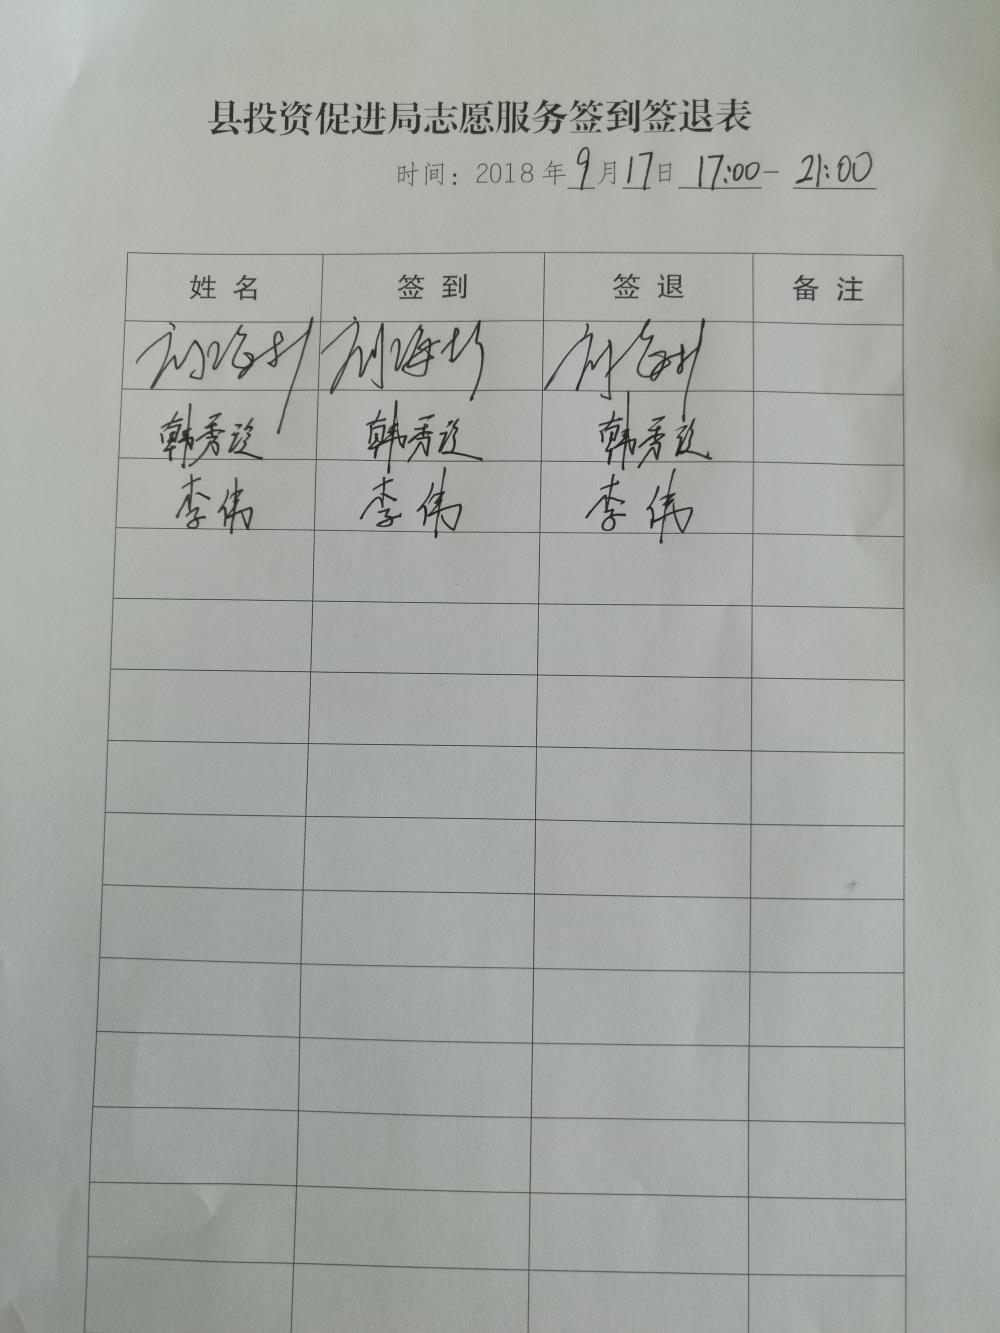 县投资促进局志愿服务签到签退表
时间：2018年9月17日 17:00- 21:00
姓名 签到 签退 备注
刘海 刘海 刘海
韩秀 韩秀 韩秀
李伟 李伟 李伟